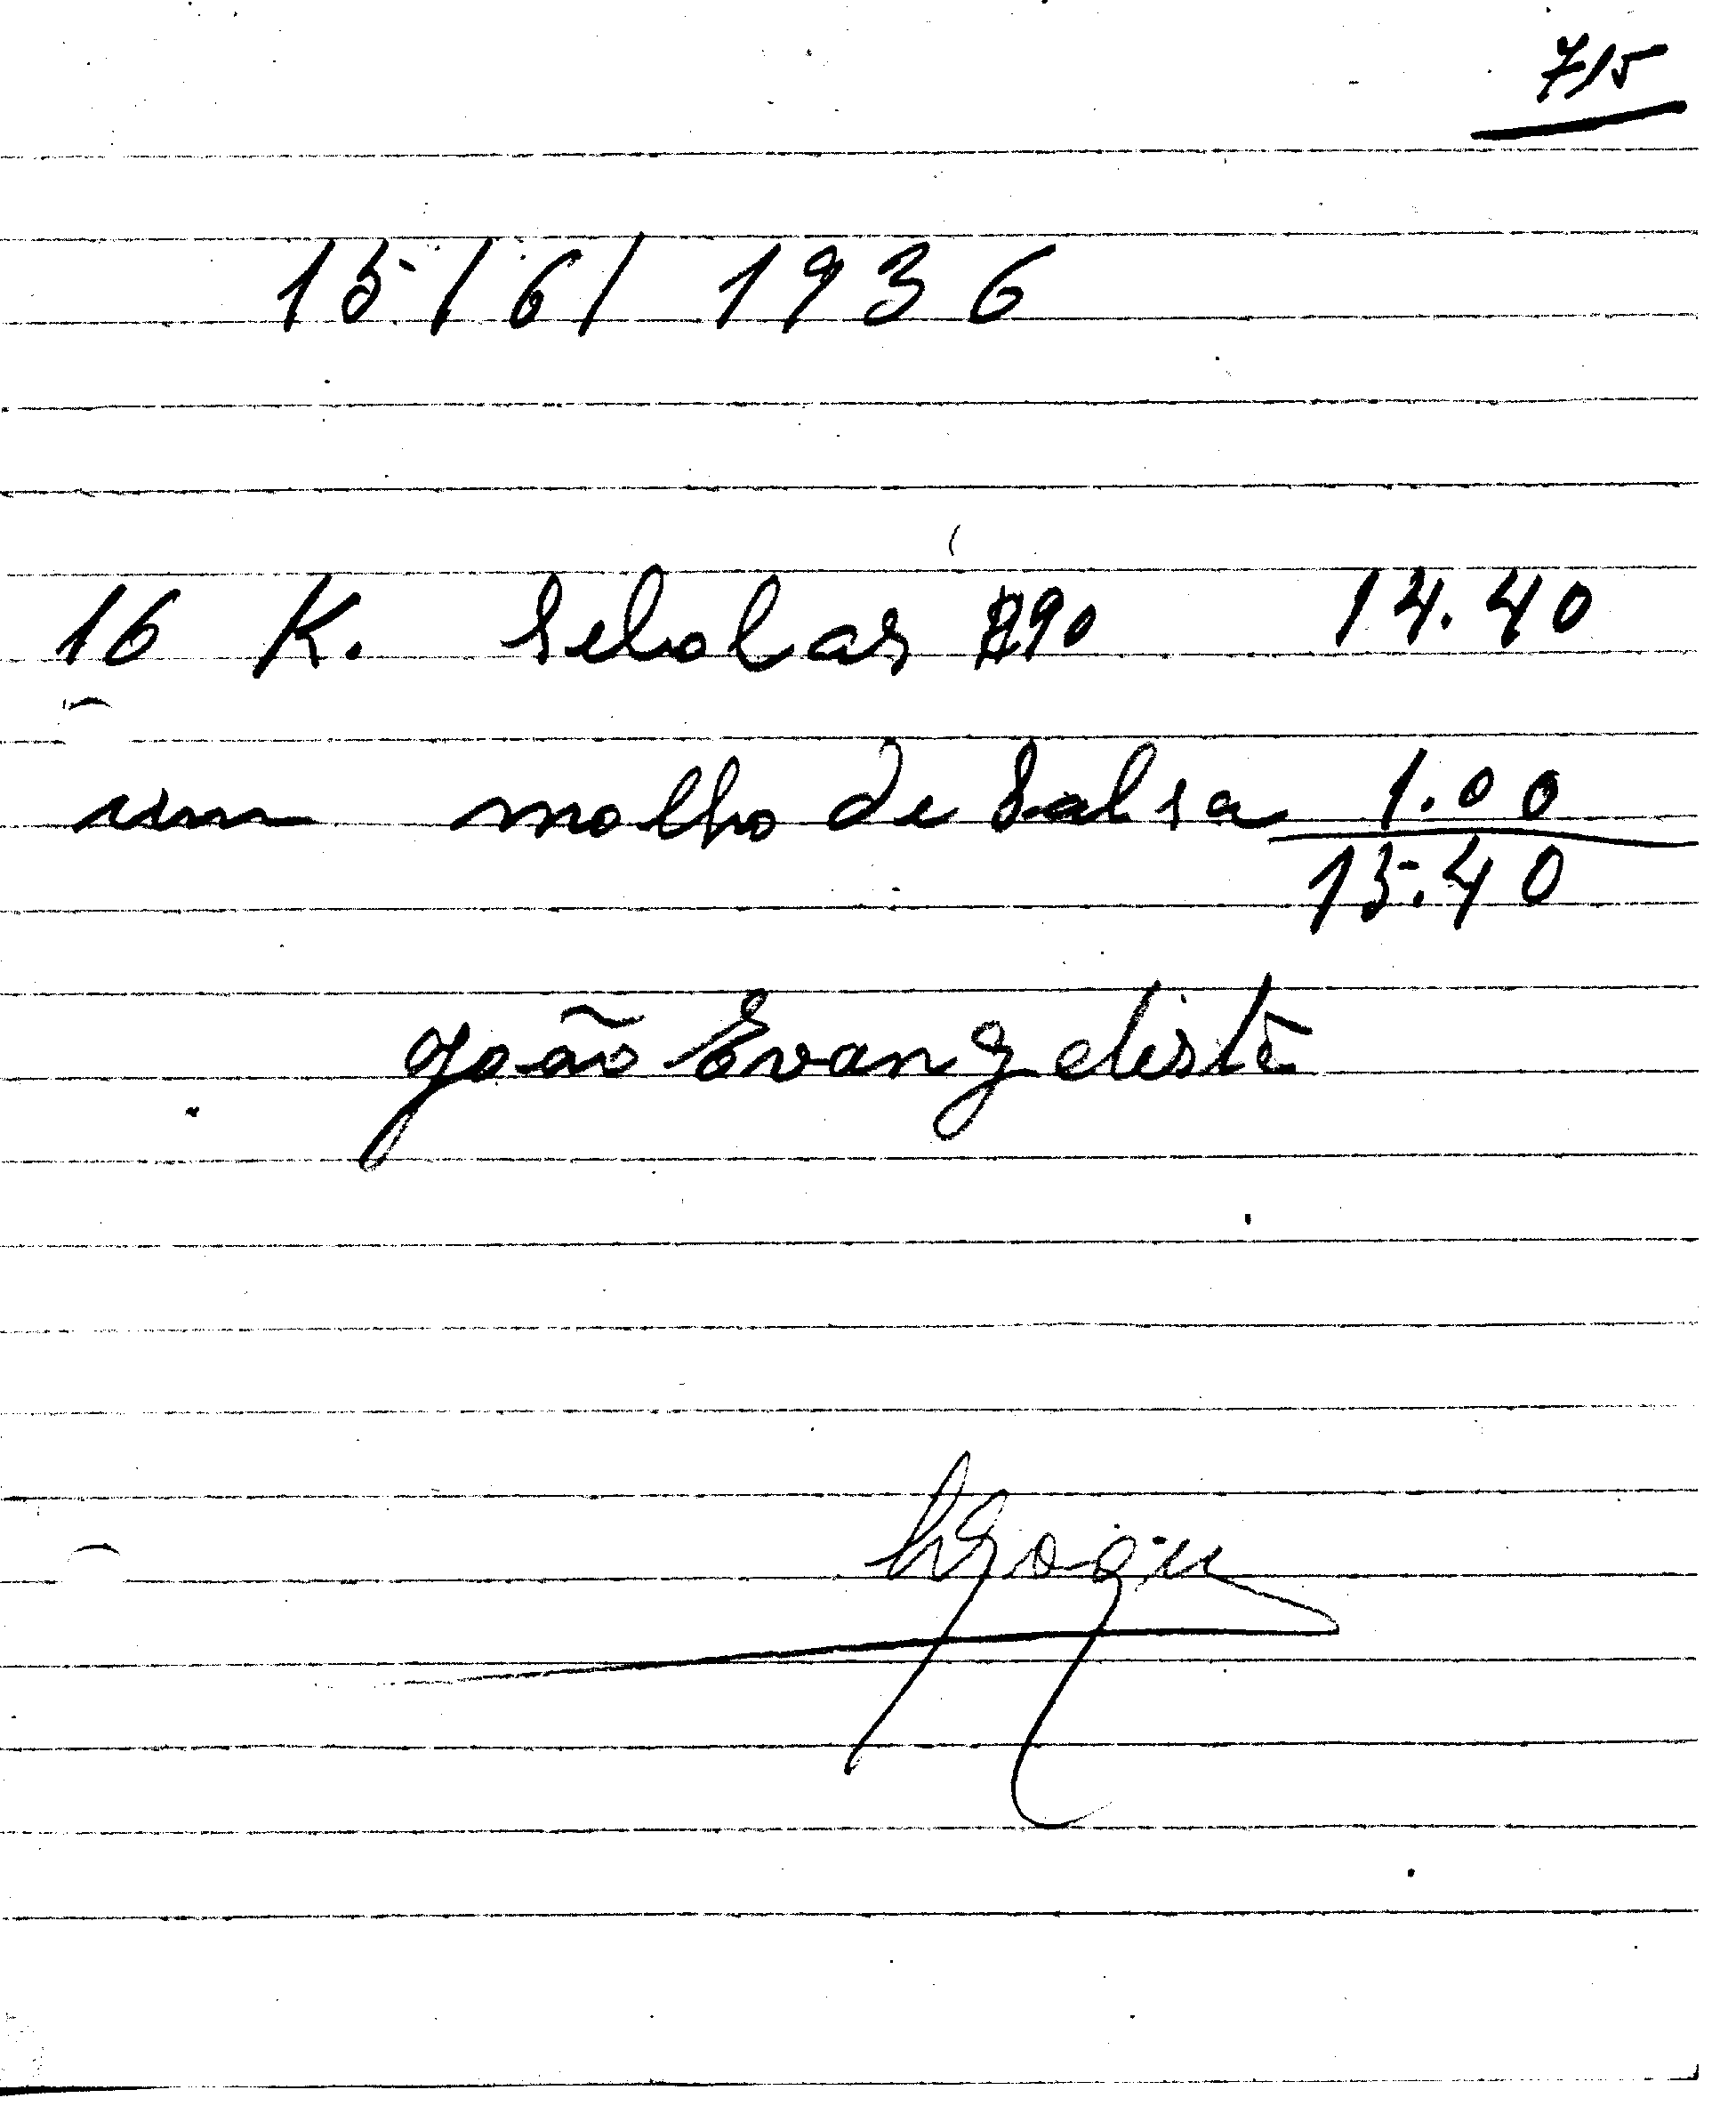 715
15/6/1936
16 K. Sebolas $90 14.40
um molho de Salsa 1.00
15.40
João Evangelista